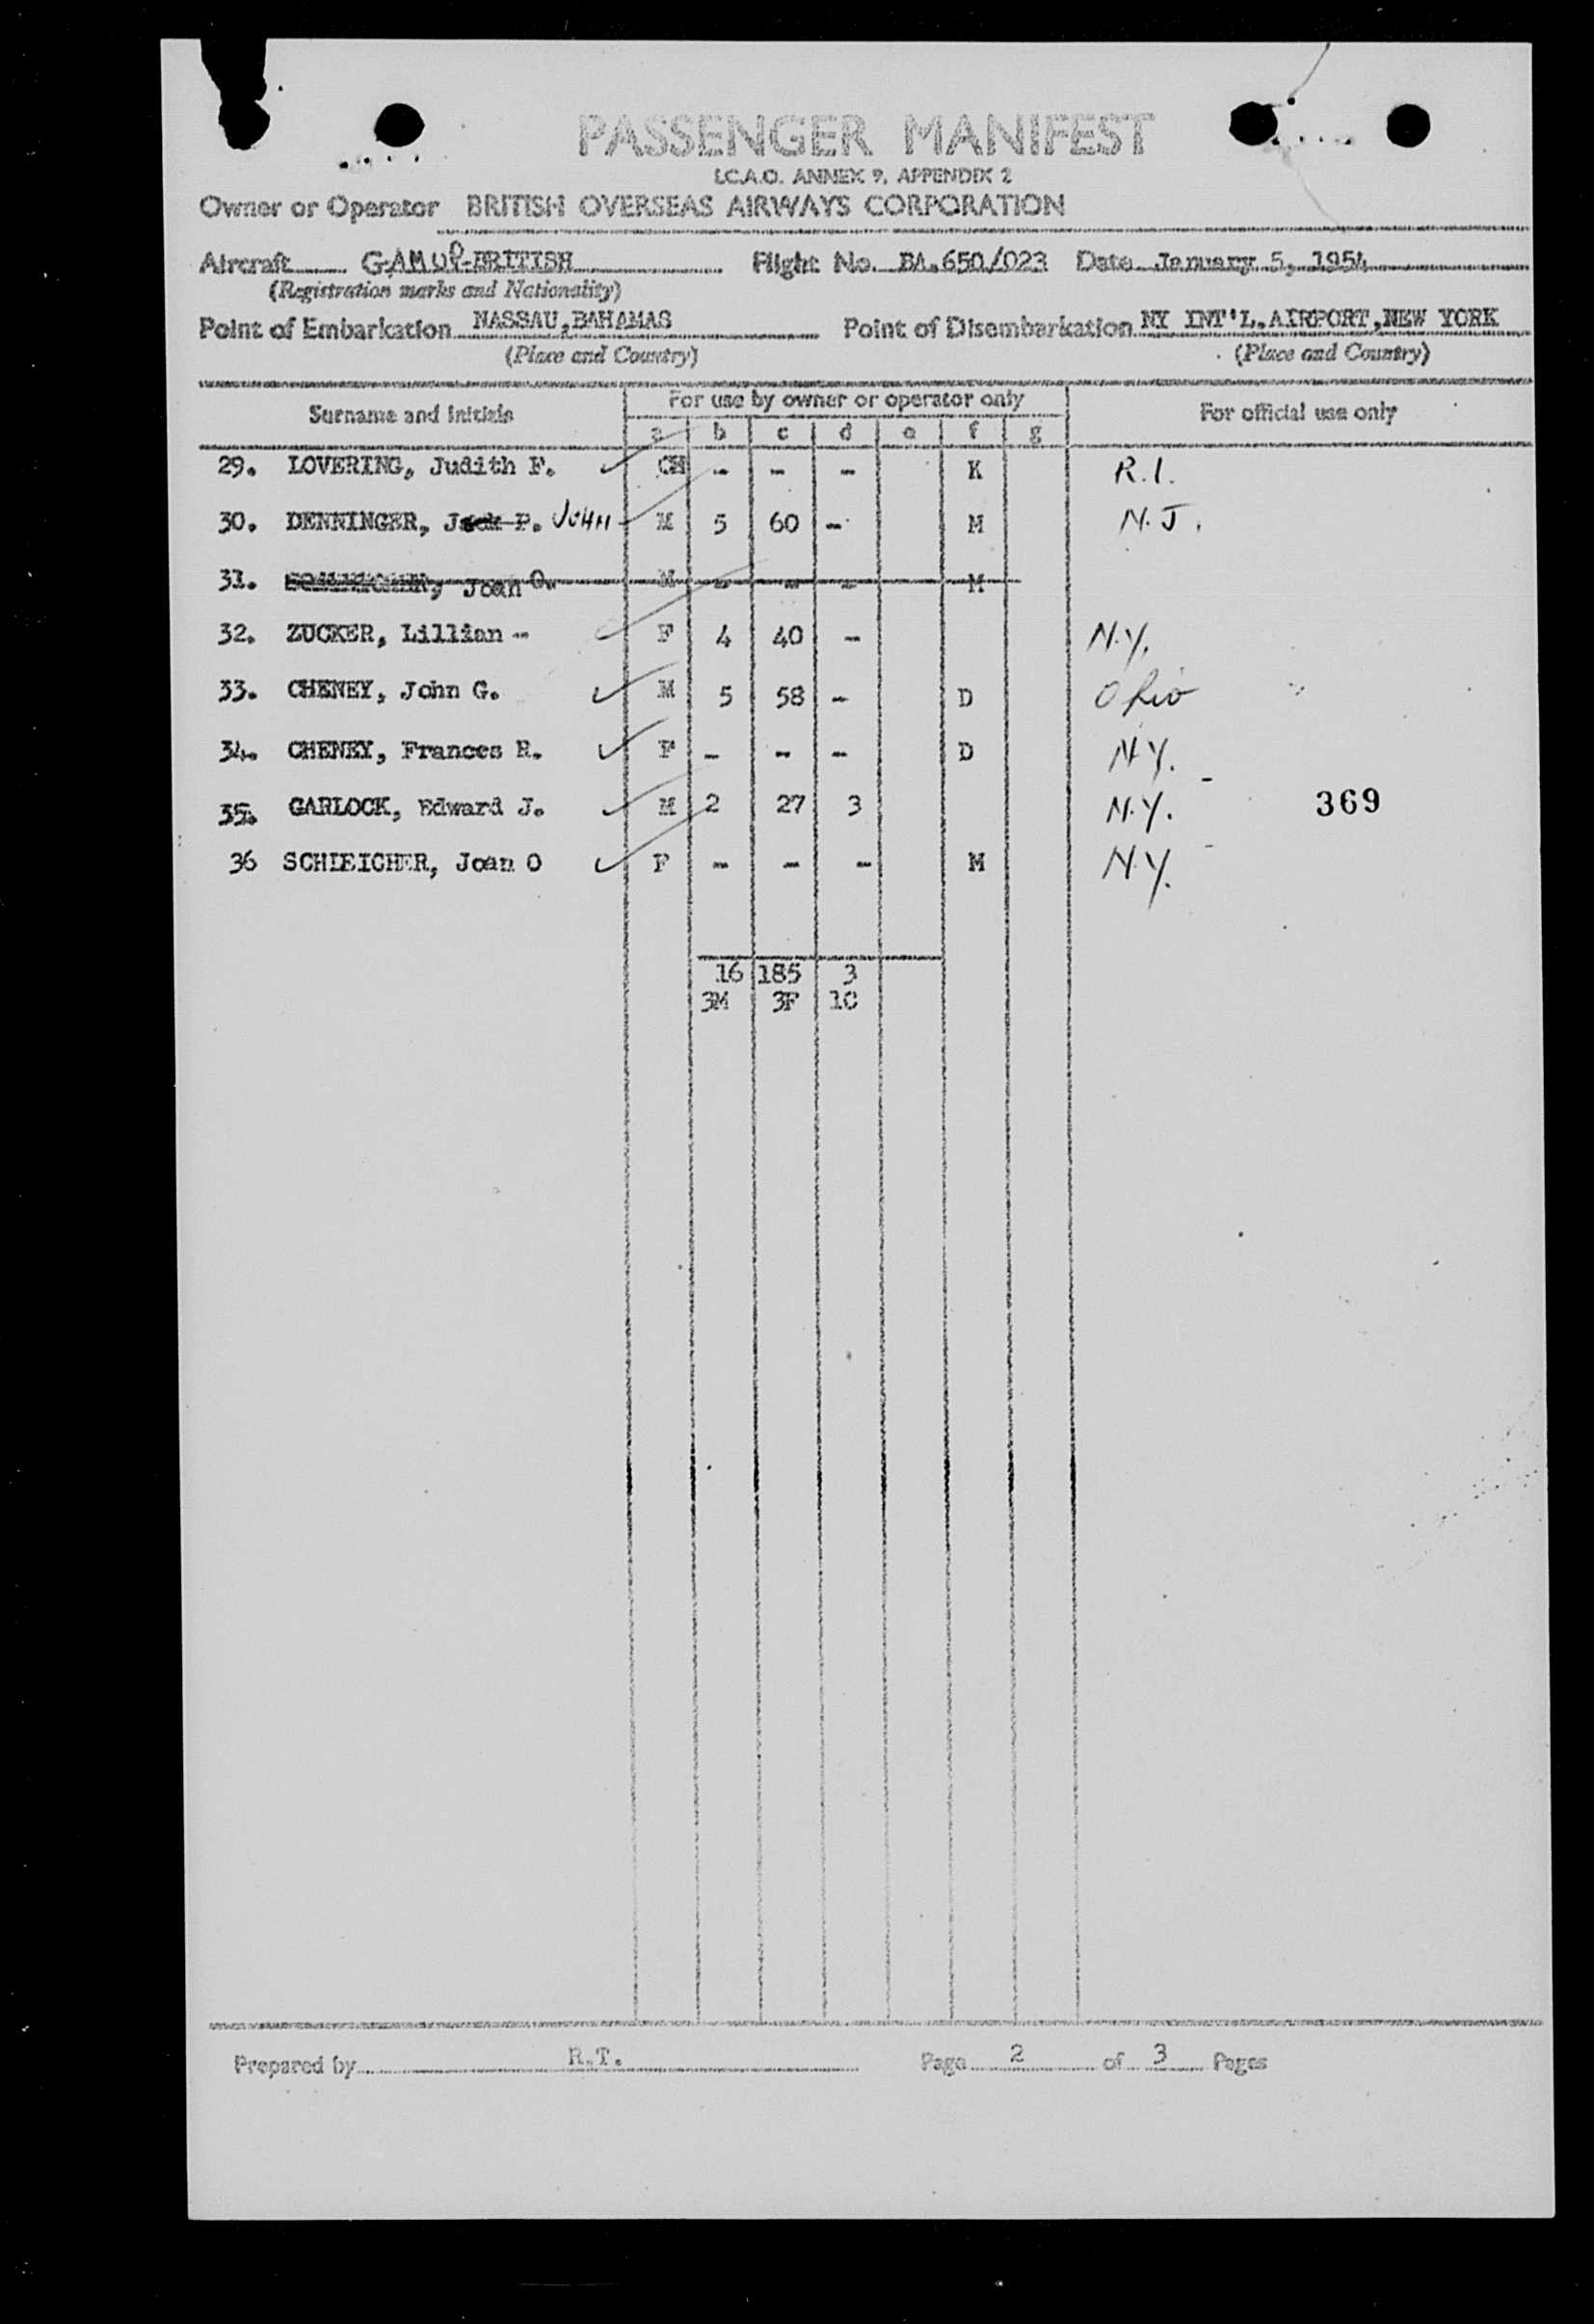 PASSENGER MANIFEST
I.C.A.O. ANNEX 9, APPENDIX 2
Owner or Operator BRITISH OVERSEAS AIRWAYS CORPORATION
Aircraft G-AMUP-BRITISH Flight No. BA.650/023 Date January 5, 1954
(Registration marks and Nationality)
Point of Embarkation NASSAU,BAHAMAS Point of Disembarkation NY INT'L.AIRPORT,NEW YORK
(Place and Country) (Place and Country)
Surname and Initials For use by owner or operator only For official use only
a b c d e f g
29. LOVERING, Judith F. CH - - - K R.I.
30. DENNINGER, Jack P. JOHN M 5 60 - M N.J.
31. Joan O. M - - - M
32. ZUCKER, Lillian - F 4 40 - N.Y.
33. CHENEY, John G. M 5 58 - D Ohio
34. CHENEY, Frances R. F - - - D N.Y.
35. GARLOCK, Edward J. M 2 27 3 N.Y. 369
36 SCHIEICHER, Joan O F - - - M N.Y.
16 185 3
3M 3F 1C
Prepared by R.T. Page 2 of 3 Pages